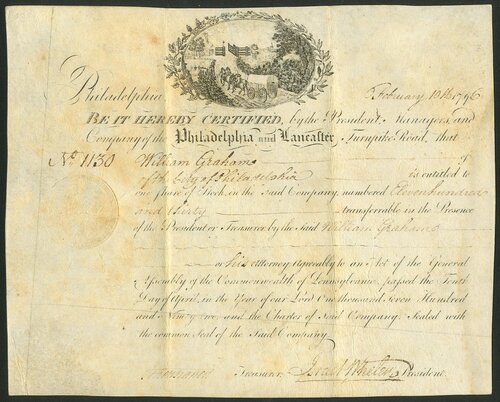 Philadelphia February 13th 1796
BE IT HEREBY CERTIFIED, by the President, Managers, and
Company of the Philadelphia and Lancaster Turnpike Road, that
No. 1130 William Graham of
the City of Philadelphia is entitled to
one Share of Stock, in the said Company, numbered Eleven hundred
and thirty transferrable in the Presence
of the President or Treasurer by the said William Graham
or his Attorney Agreeably to an Act of the General
Assembly of the Commonwealth of Pennsylvania, passed the Tenth
Day of April, in the Year of our Lord One thousand Seven Hundred
and Ninety two, and the Charter of said Company, Sealed with
the common Seal of the said Company
Treasurer. Israel Whelen President.